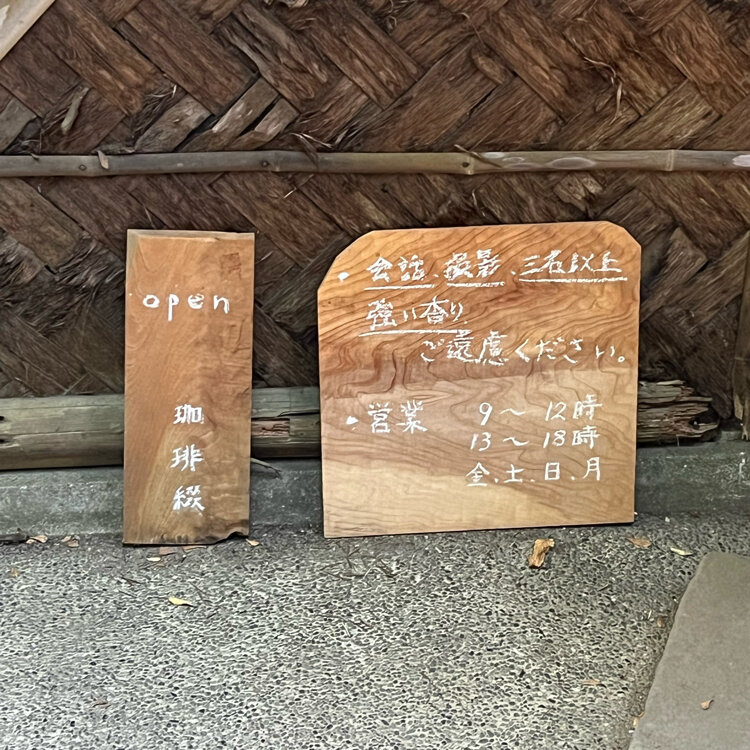 open
珈琲綴
・会話、撮影、三名以上
強い香り
ご遠慮ください。
・営業 9〜12時
13〜18時
金、土、日、月